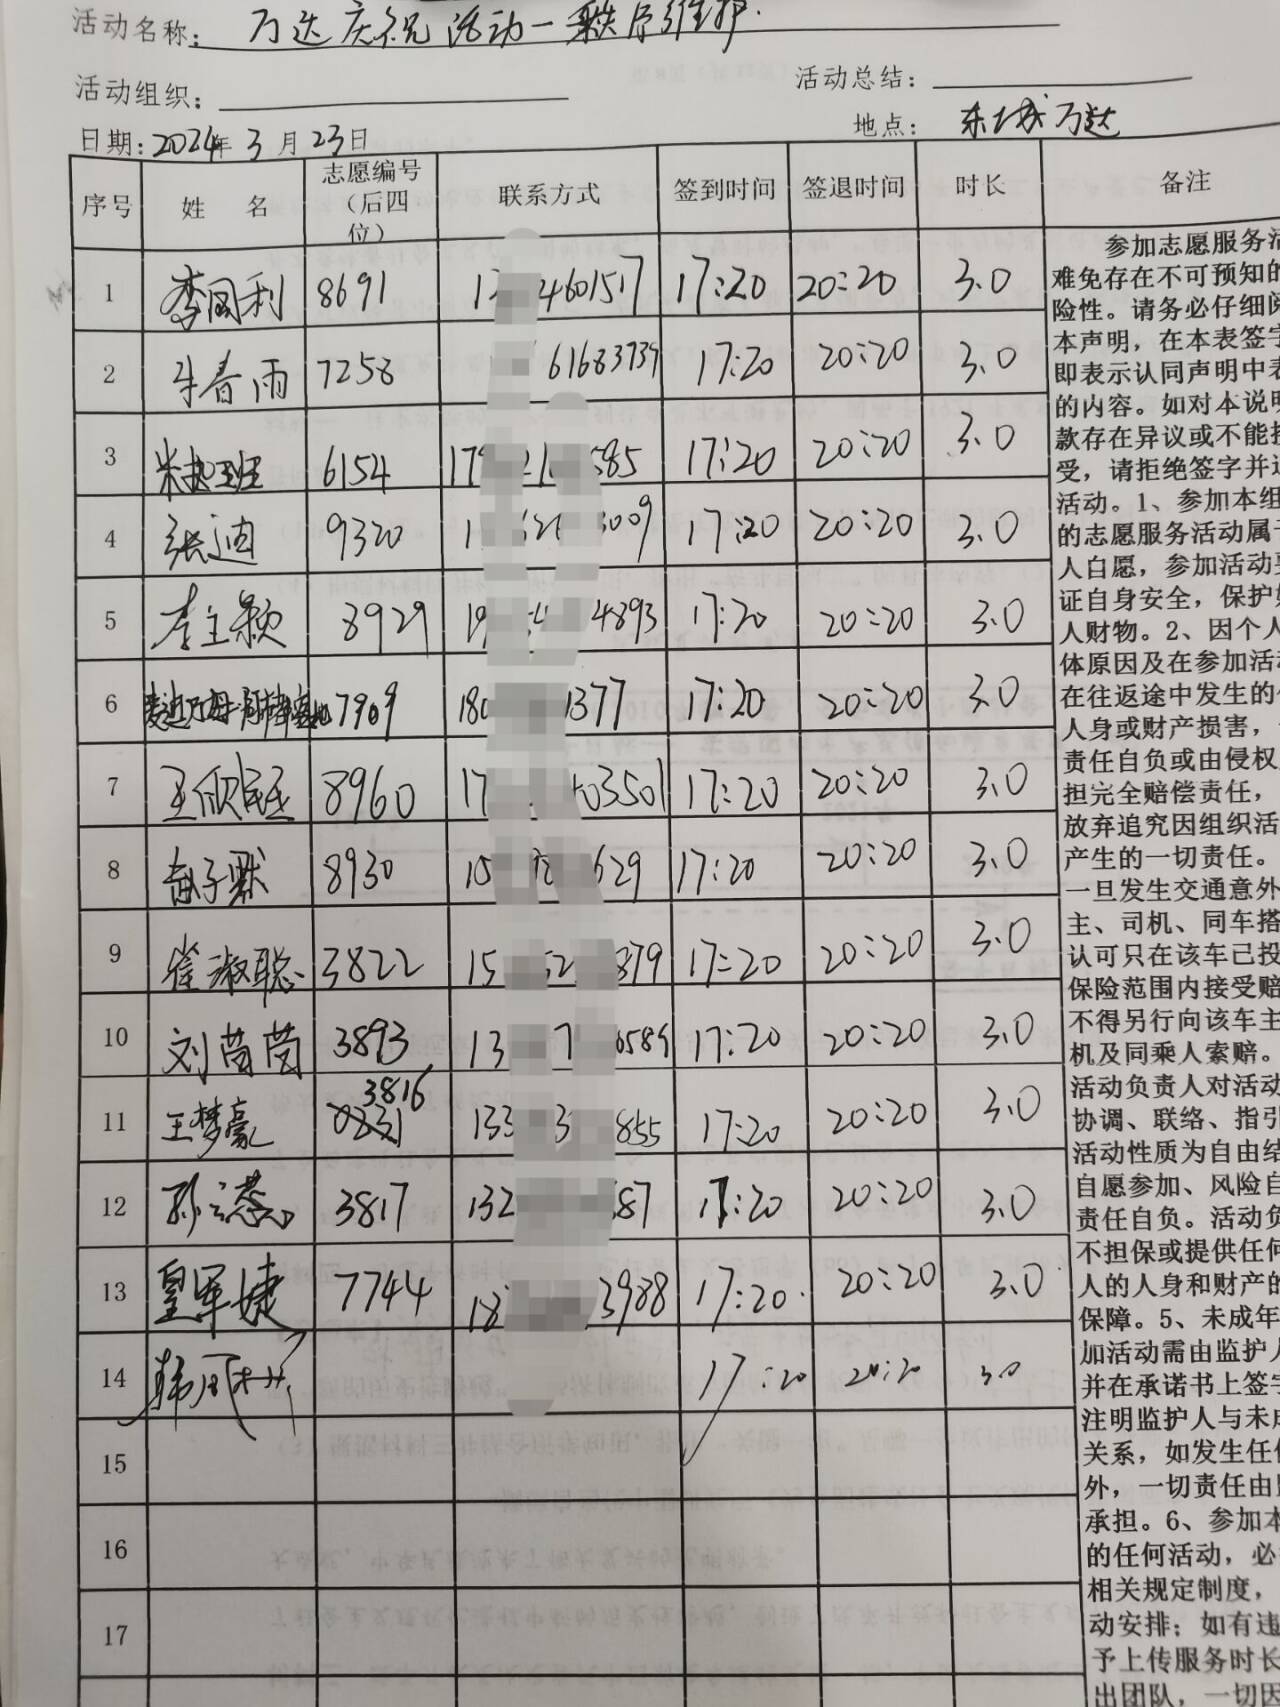 活动名称：万达庆祝活动一秩序维护.
活动组织：
活动总结：
日期：2024年3月23日
地点：东城万达
序号 姓 名 志愿编号（后四位） 联系方式 签到时间 签退时间 时长 备注
1 李国利 8691 4601517 17:20 20:20 3.0
2 牛春雨 7258 61683739 17:20 20:20 3.0
3 6154 17 585 17:20 20:20 3.0
4 张迪 9320 3009 17:20 20:20 3.0
5 李主颖 8929 19 4893 17:20 20:20 3.0
6 7909 180 1377 17:20 20:20 3.0
7 8960 17 03501 17:20 20:20 3.0
8 子默 8930 15 629 17:20 20:20 3.0
9 崔淑聪 3822 15 52 879 17:20 20:20 3.0
10 刘茵茵 3893 13 7 17:20 20:20 3.0
11 王梦豪 3816 133 3 855 17:20 20:20 3.0
12 孙 3817 132 87 17:20 20:20 3.0
13 皇军婕 7744 18 3988 17:20. 20:20 3.0
14 韩 17:20 20:20 3.0
15
16
17
参加志愿服务活
难免存在不可预知的
险性。请务必仔细阅
本声明，在本表签字
即表示认同声明中表
的内容。如对本说明
款存在异议或不能接
受，请拒绝签字并退
活动。1、参加本组
的志愿服务活动属于
人自愿，参加活动要
证自身安全，保护好
人财物。2、因个人
体原因及在参加活动
在往返途中发生的
人身或财产损害，
责任自负或由侵权
担完全赔偿责任，
放弃追究因组织活
产生的一切责任。
一旦发生交通意外
主、司机、同车搭
认可只在该车已投
保险范围内接受赔
不得另行向该车主
机及同乘人索赔。
活动负责人对活动
协调、联络、指引
活动性质为自由结
自愿参加、风险自
责任自负。活动负
不担保或提供任何
人的人身和财产的
保障。5、未成年
加活动需由监护人
并在承诺书上签字
注明监护人与未成
关系，如发生任何
外，一切责任由监
承担。6、参加本
的任何活动，必
相关规定制度，
动安排；如有违
予上传服务时长
出团队，一切因